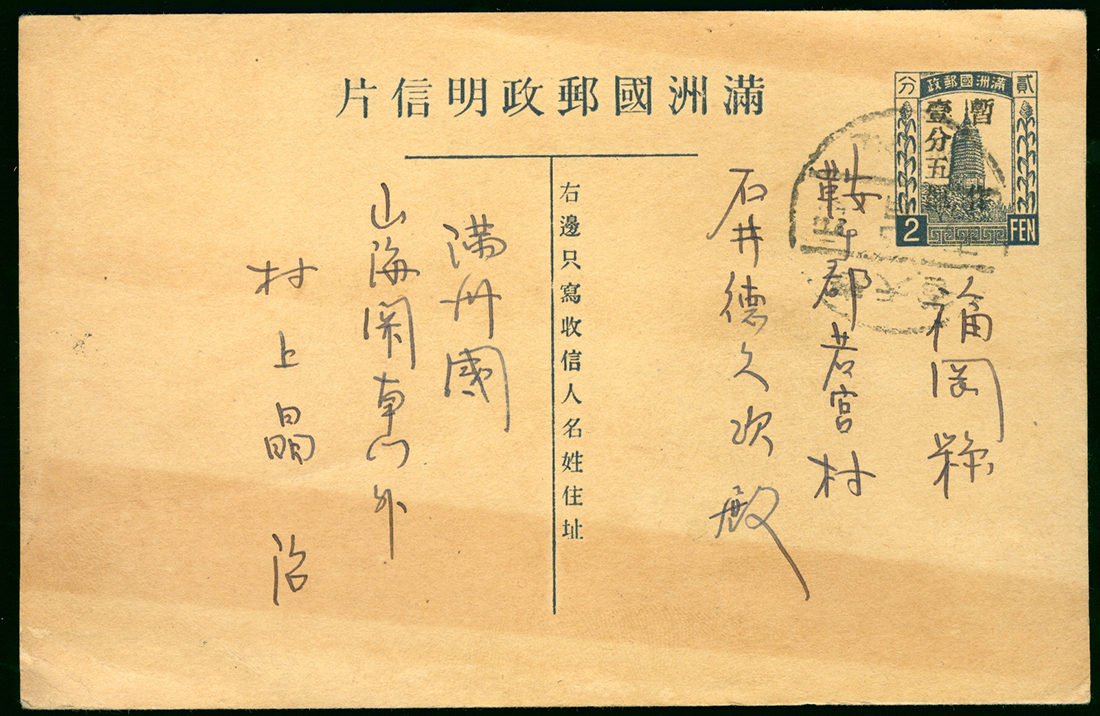 滿洲國郵政明信片
滿洲國郵政
貳分
暫作
壹分五釐
2 FEN
福岡縣
鞍手郡若宮村
石井德久次殿
右邊只寫收信人名姓住址
満州國
山海関東門外
村上晶治